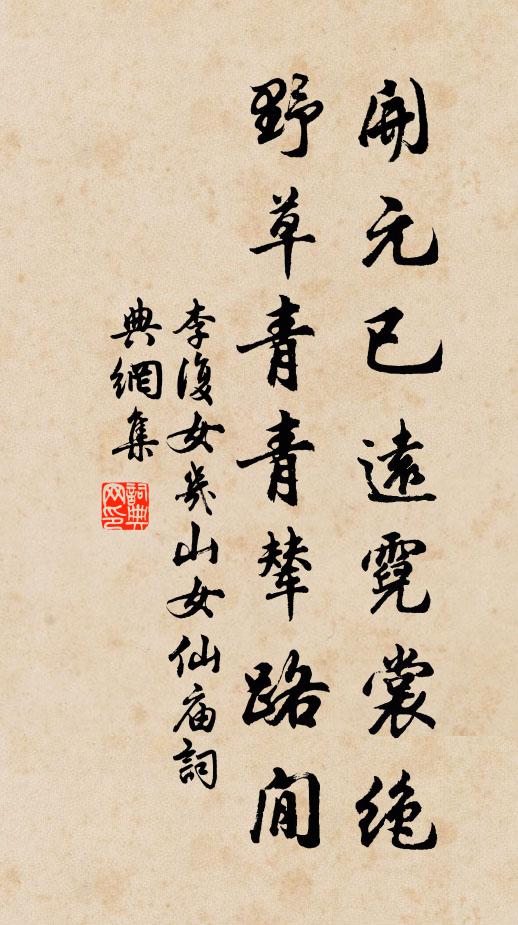 開元已遠霓裳絶
野草青青輦路閒
李復女几山女仙庙詞
典網集
詞典网印